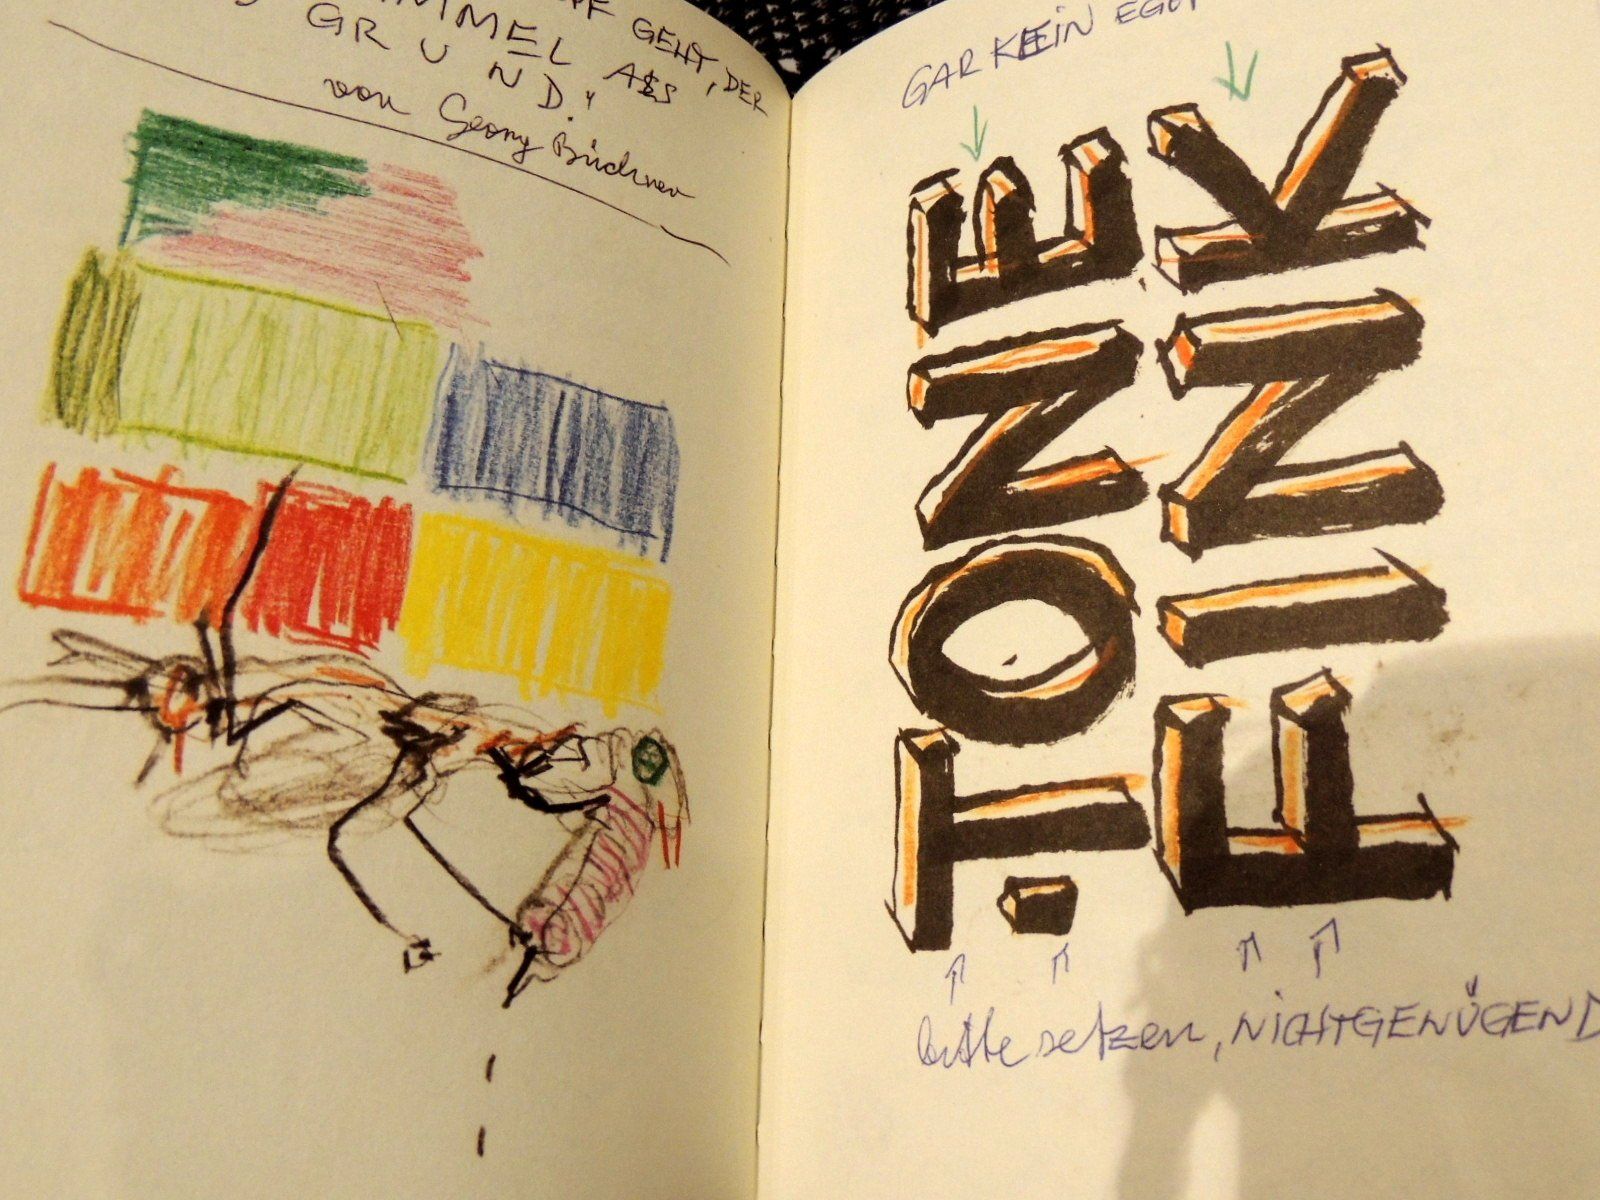 PF GEHT, DER
MMEL ALS
GRUND."
von Georg Büchner
GAR KEIN EGO
TONE
FINK
bitte setzen, NICHTGENÜGEND